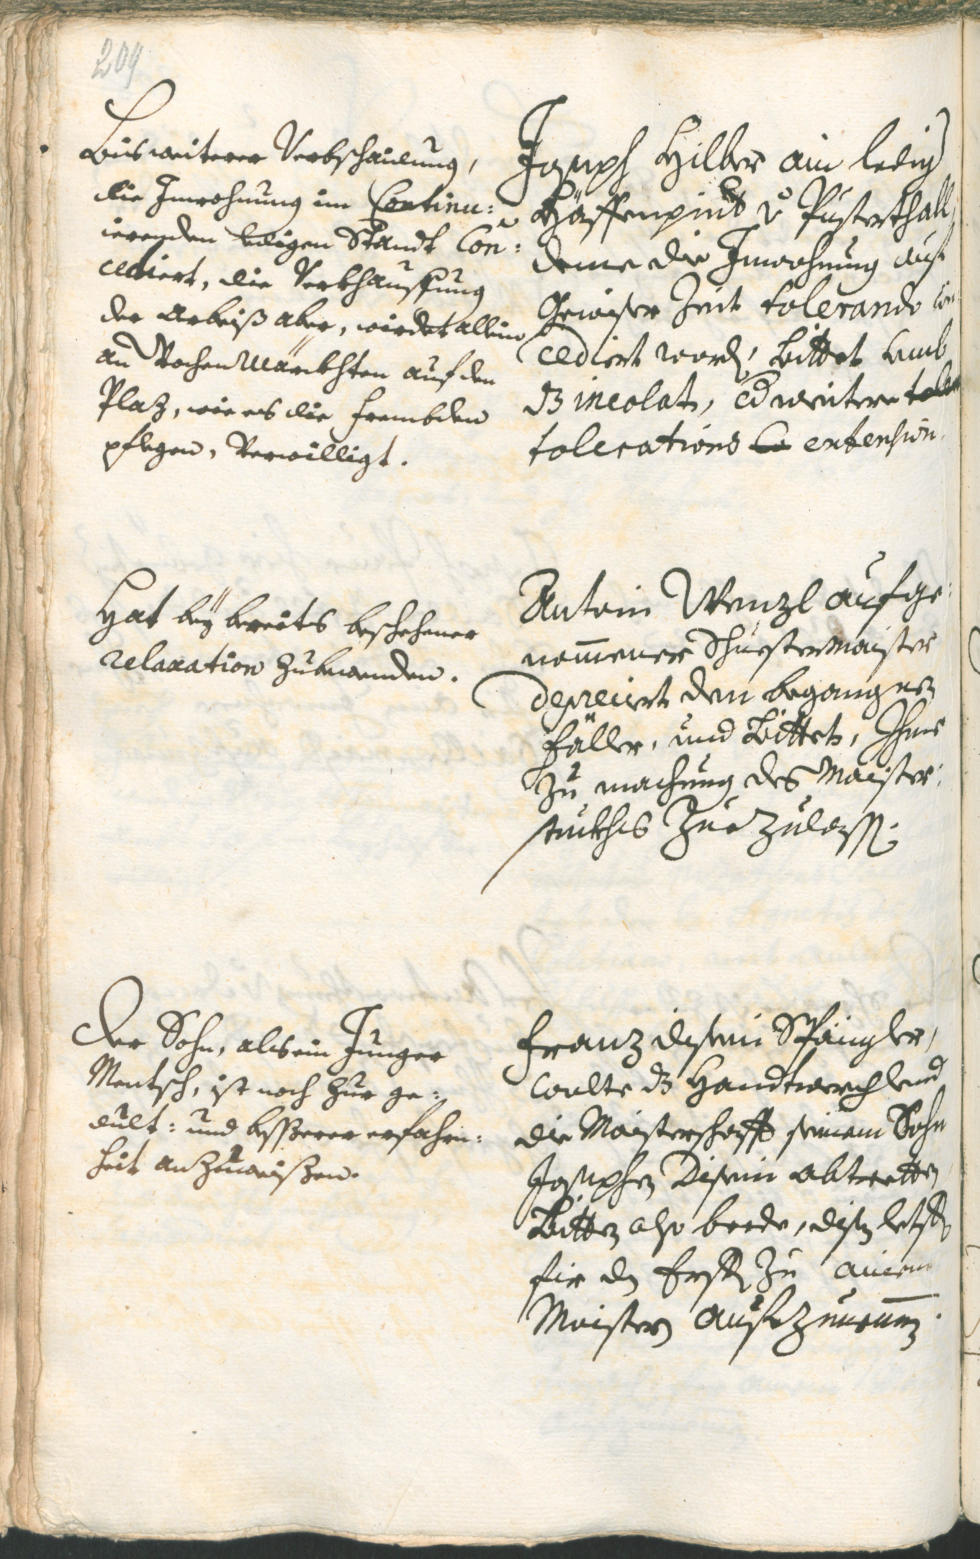 209
Bis weiterer Verbschaidung,
die Inwohnung im Continu:
ierenden ledigen Standt Con:
cediert, die Verkhauffung
der Arbeiß aber, wirdet allein
an WochenMärckhten auf den
Plaz, wie es die frembden
pflegen, Verwilligt.
Joseph Hilber ain ledig
Häffenpint v Pusterthall
deme die Inwohnung auf
Gewiser Zeit tolerando con
cediert word, bittet umb
dz incolat, od weitere
tolerations extension.
Hat bey bereits beschehener
relaxation zubewenden.
Antoni Wenzl aufge
nommener Schuestermaister
depreciert den begangnen
fäller, und bittet, Ihme
zu machung des Maister:
stuckhs Zue Zulassen.
Der Sohn, als ein Junger
Mentsch, ist noch zur ge:
dult: und besserer erfahren:
heit anzuweißen.
Franz Spängler,
wolte dz Handtwerch und
die Maisterschafft seinem Sohn
Josephen abtretten
Bitten also beede, disen letst
fir den Erst zu ainem
Maister aufzunemmen.